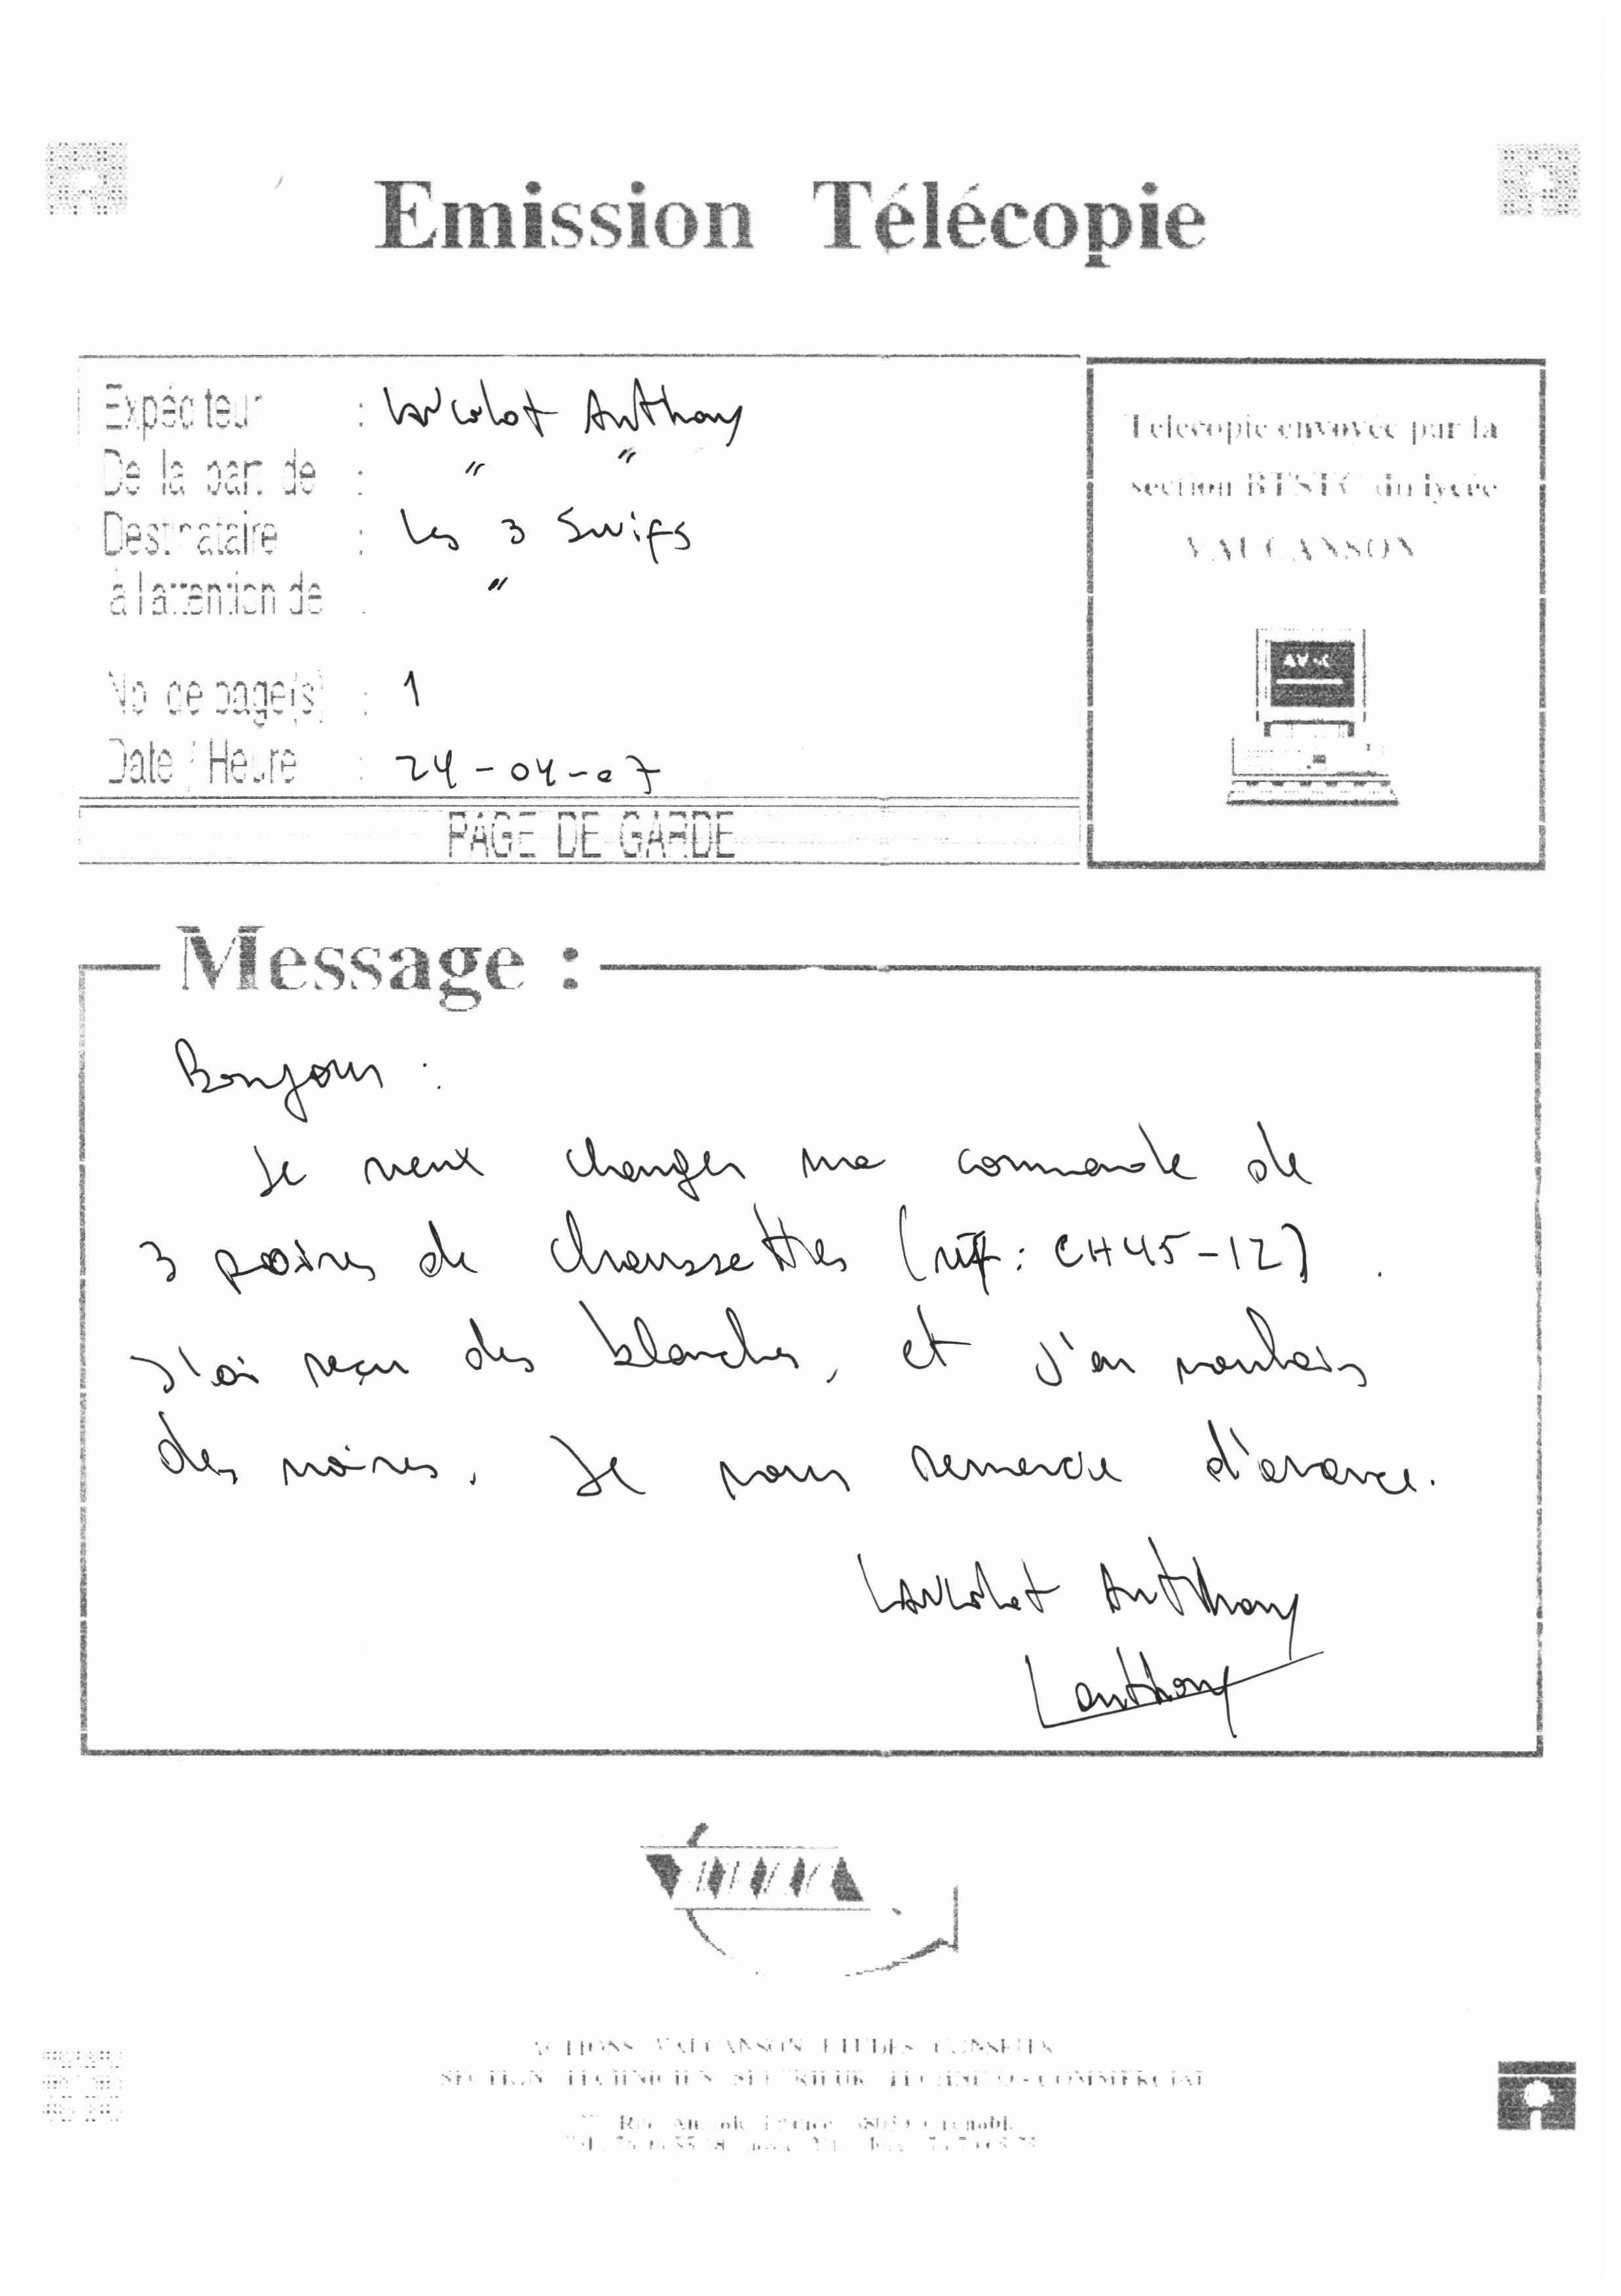 Emission Télécopie
Expéditeur : Lancelot Anthony
De la part de : " "
Destinataire : Les 3 Swifs
à l'attention de : "
No de page(s) : 1
Date / Heure : 24-04-07
PAGE DE GARDE
Télécopie envoyée par la
section BTSTC du lycée
VAUCANSON
Message :
Bonjour :
Je veux changer ma commande de
3 paires de chaussettes (réf : CH45-12).
J'ai reçu des blanches, et j'en voulais
des noires. Je vous remercie d'avance.
Lancelot Anthony
Lanthony
ACTIONS VAUCANSON ETUDES CONSEILS
SECTION TECHNICIEN SUPERIEUR TECHNICO-COMMERCIAL